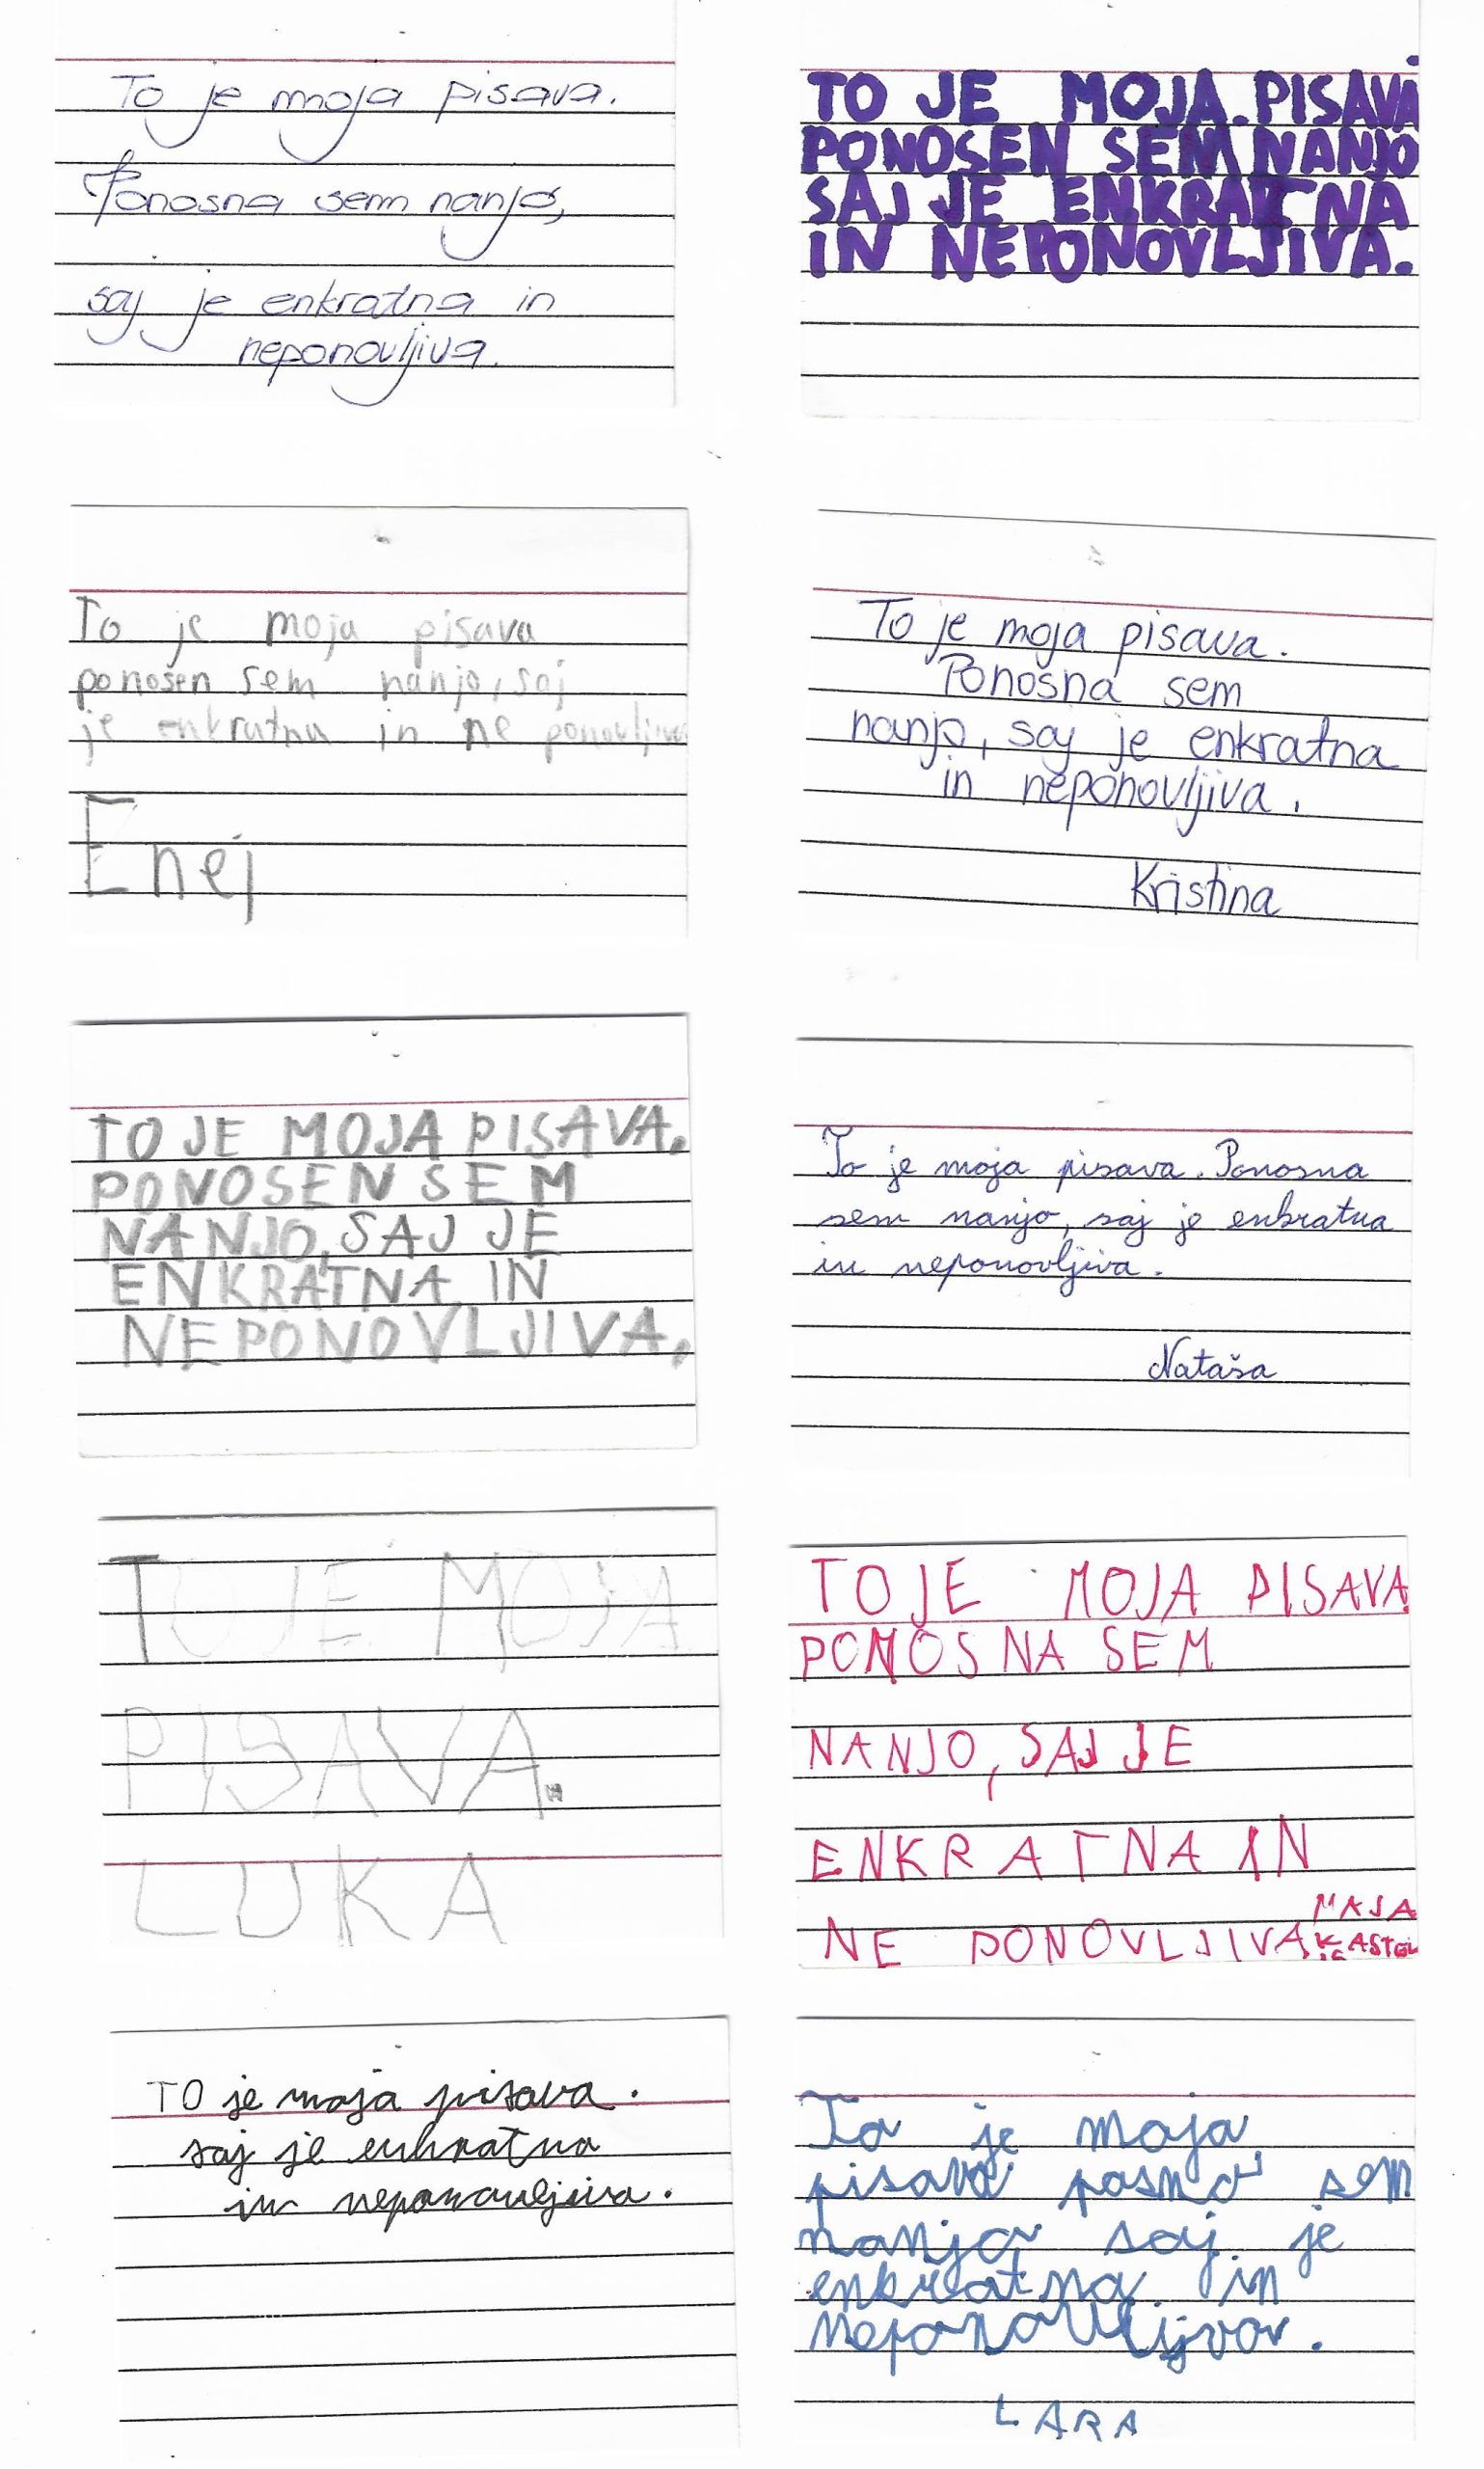 To je moja pisava.
Ponosna sem nanjo,
saj je enkratna in
neponovljiva.
TO JE MOJA PISAVA
PONOSEN SEM NANJO
SAJ JE ENKRATNA
IN NEPONOVLJIVA.
To je moja pisava
ponosen sem nanjo, saj
je enkratna in ne ponovljiva
Enej
To je moja pisava.
Ponosna sem
nanjo, saj je enkratna
in neponovljiva.
Kristina
TO JE MOJA PISAVA.
PONOSEN SEM
NANJO, SAJ JE
ENKRATNA IN
NEPONOVLJIVA.
To je moja pisava. Ponosna
sem nanjo, saj je enkratna
in neponovljiva.
Nataša
TO JE MOJA
PISAVA.
LUKA
TO JE MOJA PISAVA
PONOSNA SEM
NANJO, SAJ JE
ENKRATNA IN
NE PONOVLJIVA
MAJA
TO je moja pisava.
saj je enkratna
in neponovljiva.
To je moja
pisava posno sem
nanjo saj je
enkratna in
LARA